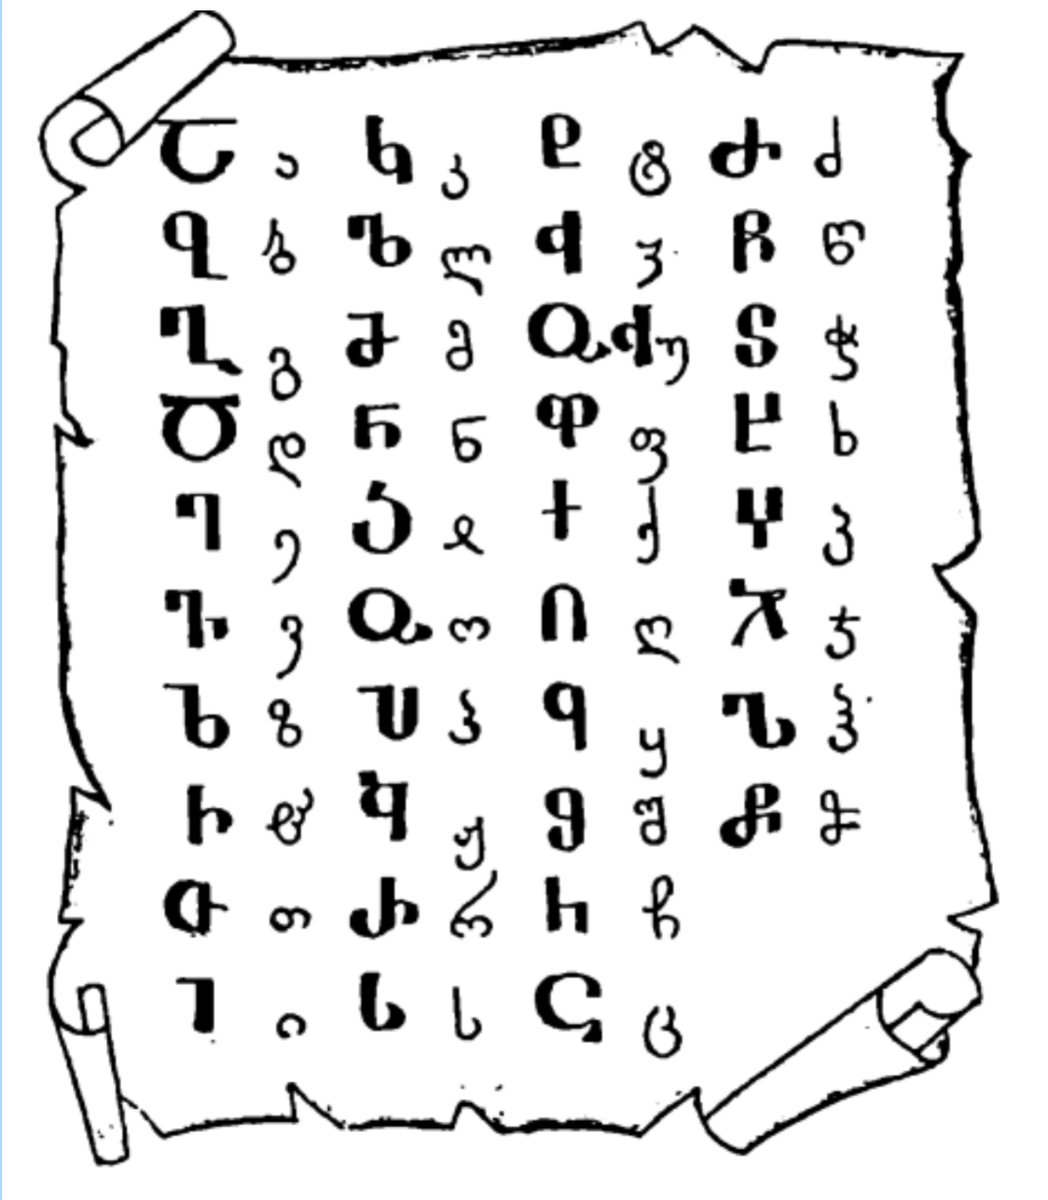 Ⴀ ა Ⴉ კ Ⴒ ტ Ⴛ ძ
Ⴁ ბ Ⴊ ლ Ⴣ ჳ Ⴜ წ
Ⴂ გ Ⴋ მ ႭჃ უ Ⴝ ჭ
Ⴃ დ Ⴌ ნ Ⴔ ფ Ⴞ ხ
Ⴄ ე Ⴢ ჲ Ⴕ ქ Ⴤ ჴ
Ⴅ ვ Ⴍ ო Ⴖ ღ Ⴟ ჯ
Ⴆ ზ Ⴎ პ Ⴗ ყ Ⴠ ჰ
Ⴡ ჱ Ⴏ ჟ Ⴘ შ Ⴥ ჵ
Ⴇ თ Ⴐ რ Ⴙ ჩ
Ⴈ ი Ⴑ ს Ⴚ ც